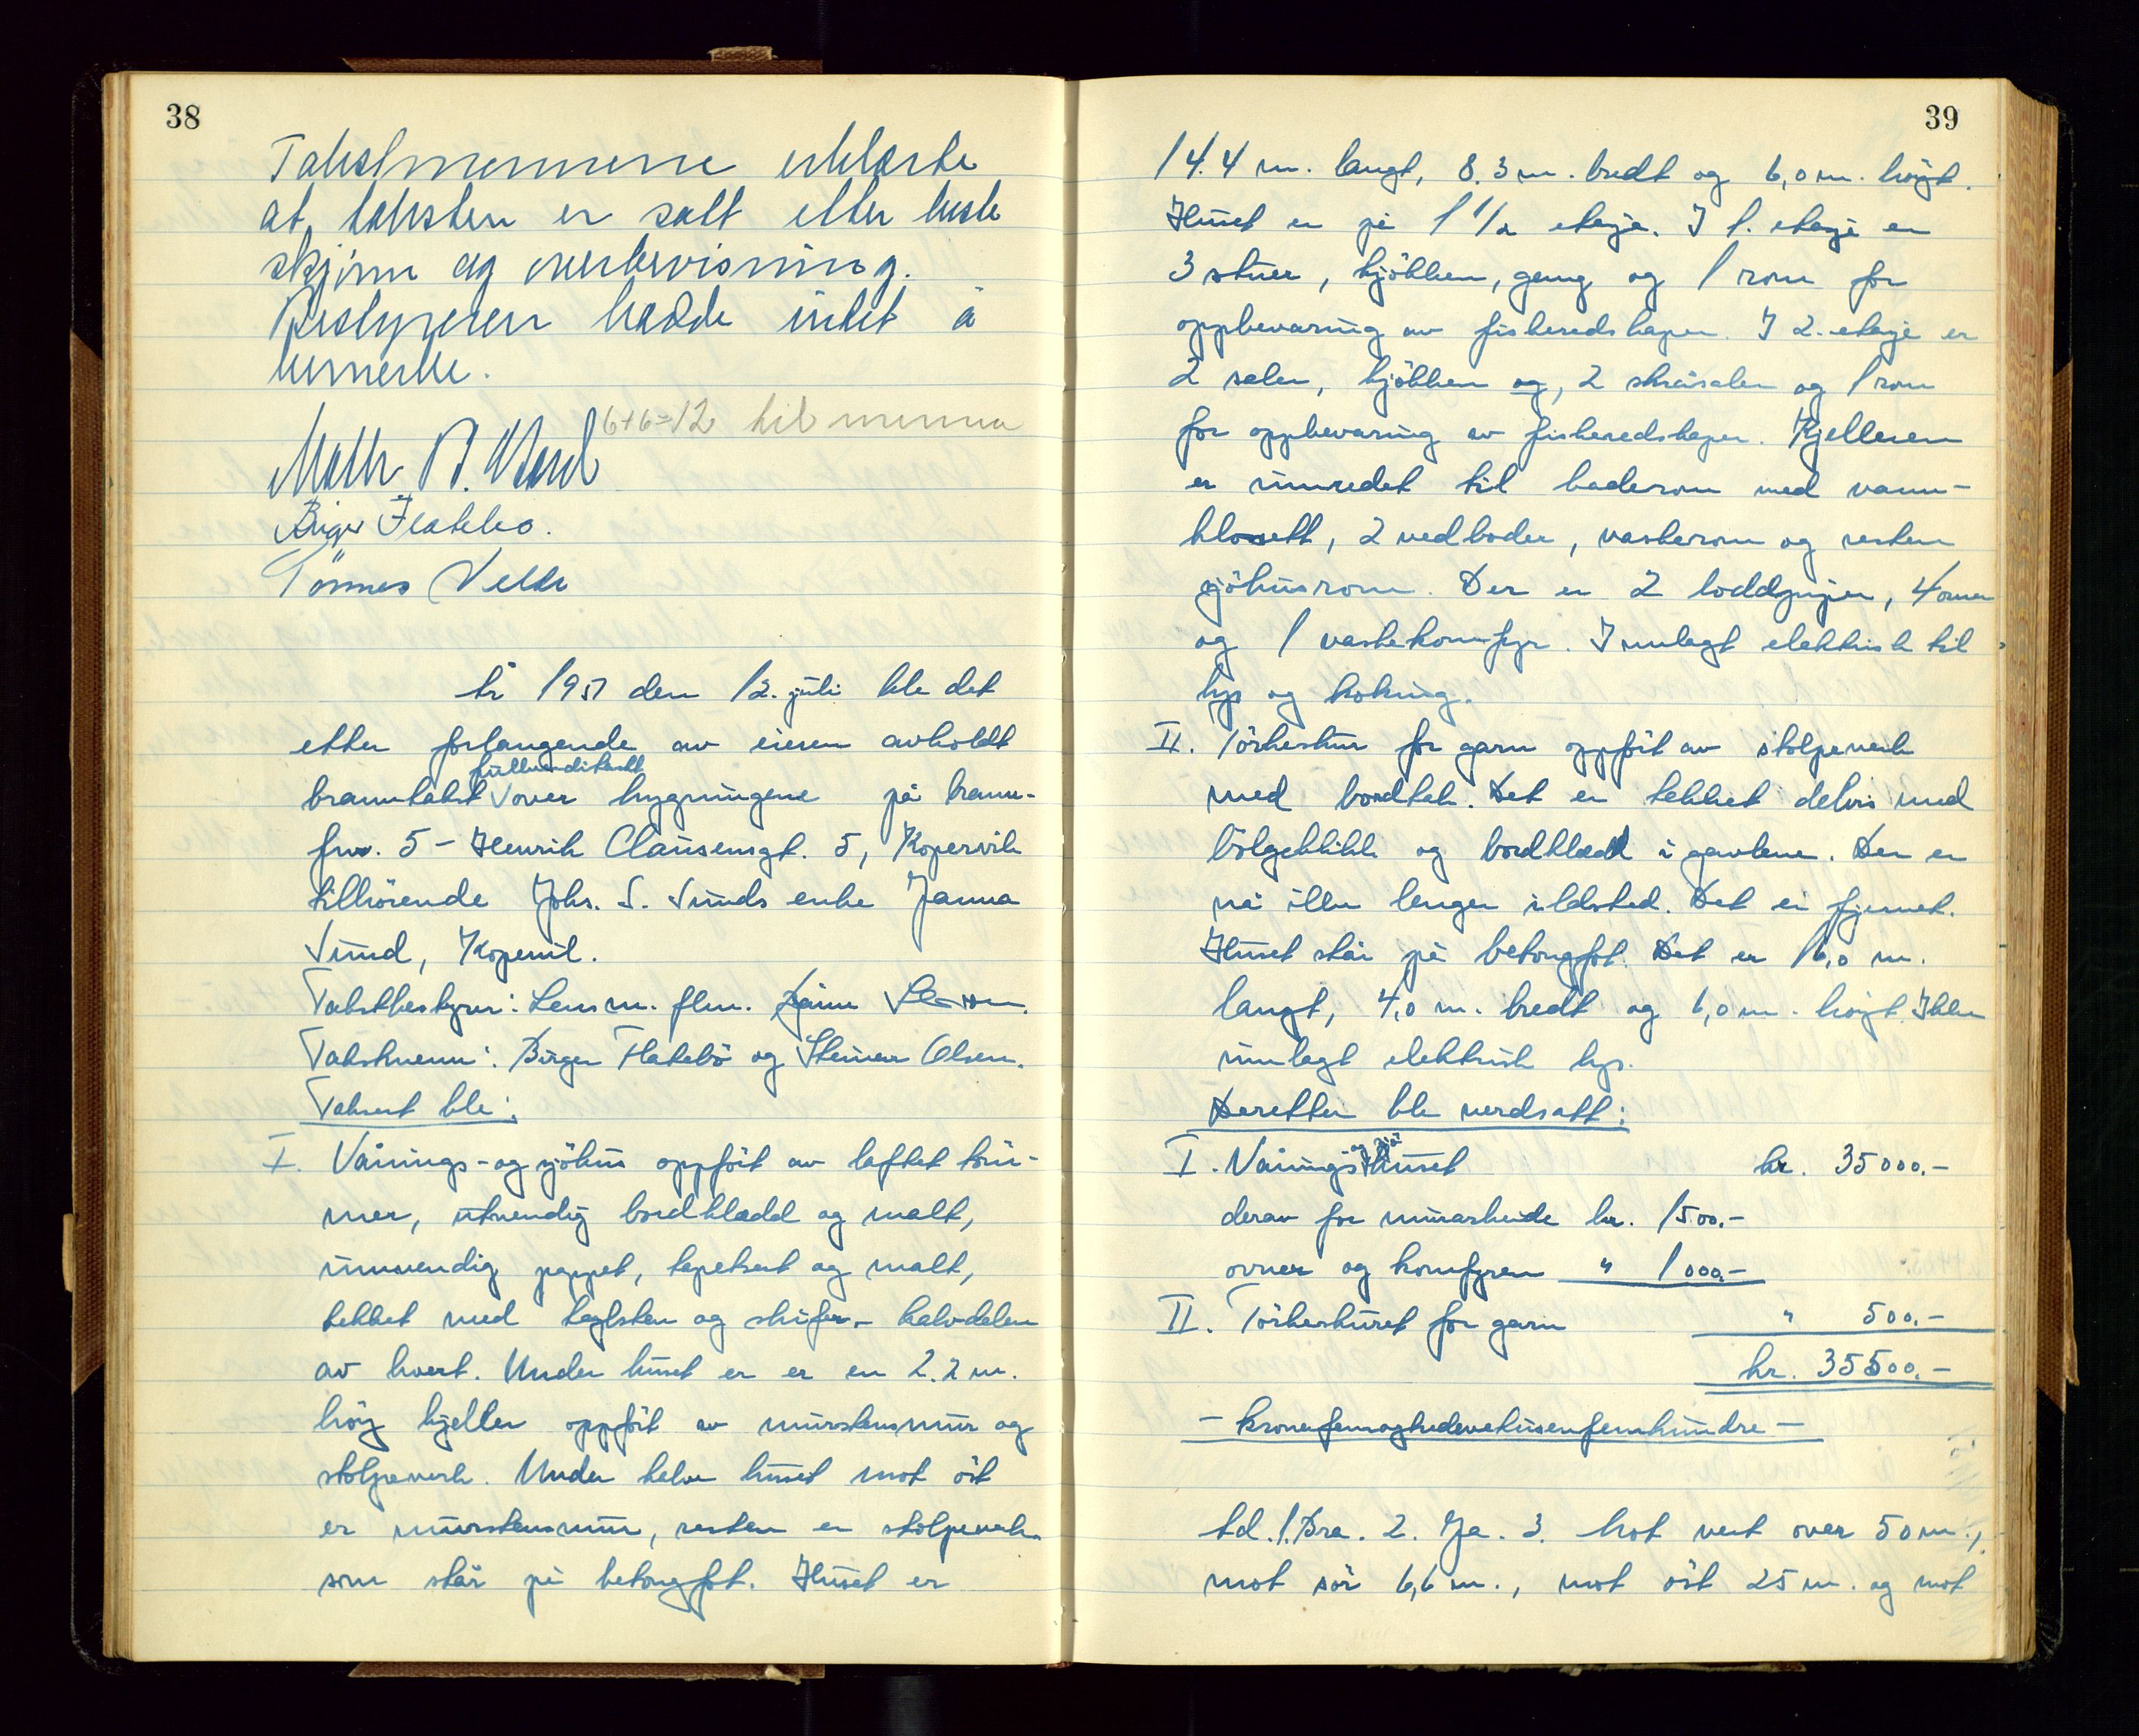 38
Takstmennene erklærte
at taksten er satt etter beste
skjönn og overbevisning.
Bestyreren hadde intet å
bemerke.
6+6=12 til menna
Birger Flatebö.
Tönnes Velde
År 1951 den 12. juli ble det
etter forlangende av eieren avholdt
branntakst fullverditakst over bygningene på brann-
fnr. 5 - Henrik Clausensgt. 5, Kopervik
tilhörende Johs. S. Sunds enke Janna
Sund, Kopervik.
Takstbestyrer: Lensm. flm.
Takstmenn: Birger Flatebö og Steinar Olsen.
Taksert ble:
I. Vånings- og sjöhus oppfört av laftet töm-
mer, utvendig bordkledd og malt,
innvendig pappet, tapetsert og malt,
tekket med taglsten og skifer - halvdelen
av hvert. Under huset er er en 2.2 m.
höy kjeller oppfört av murstensmur og
stolpeverk. Under halve huset mot öst
er murstensmur, resten er stolpeverk
som står på betongfot. Huset er
39
14.4 m. langt, 8.3 m. bredt og 6,0 m. höyt.
Huset er på 1 1/2 etasje. I 1. etasje er
3 stuer, kjökken, gang og 1 rom for
oppbevaring av fiskeredskaper. I 2. etasje er
2 saler, kjökken og, 2 skråsaler og 1 rom
for oppbevaring av fiskeredskaper. Kjelleren
er innredet til baderom med vann-
klosett, 2 vedboder, vaskerom og resten
sjöhusrom. Der er 2 loddpiper, 4 ovner
og 1 vaskekomfyr. Innlagt elektrisk til
lys og koking.
II. Törkeskur for garn oppfört av stolpeverk
med bordtak. Det er tekket delvis med
bölgeblikk og bordkledd i gavlene. Der er
nå ikke lenger ildsted. Det er fjernet.
Huset står på betongfot. Det er 16,0 m.
langt, 4,0 m. bredt og 6,0 m. höyt. Ikke
innlagt elektrisk lys.
Deretter ble verdsatt:
I. Vånings og sjö huset kr. 35000.-
derav for murarbeide kr. 1500.-
ovner og komfyren " 1000.-
II. Törkeskuret for garn " 500.-
kr. 35500.-
- kronerfemogtredevetusenfemhundre -
td. 1. Bra. 2. Ja. 3. Mot vest over 50 m.,
mot sör 6,6 m., mot öst 25 m. og mot